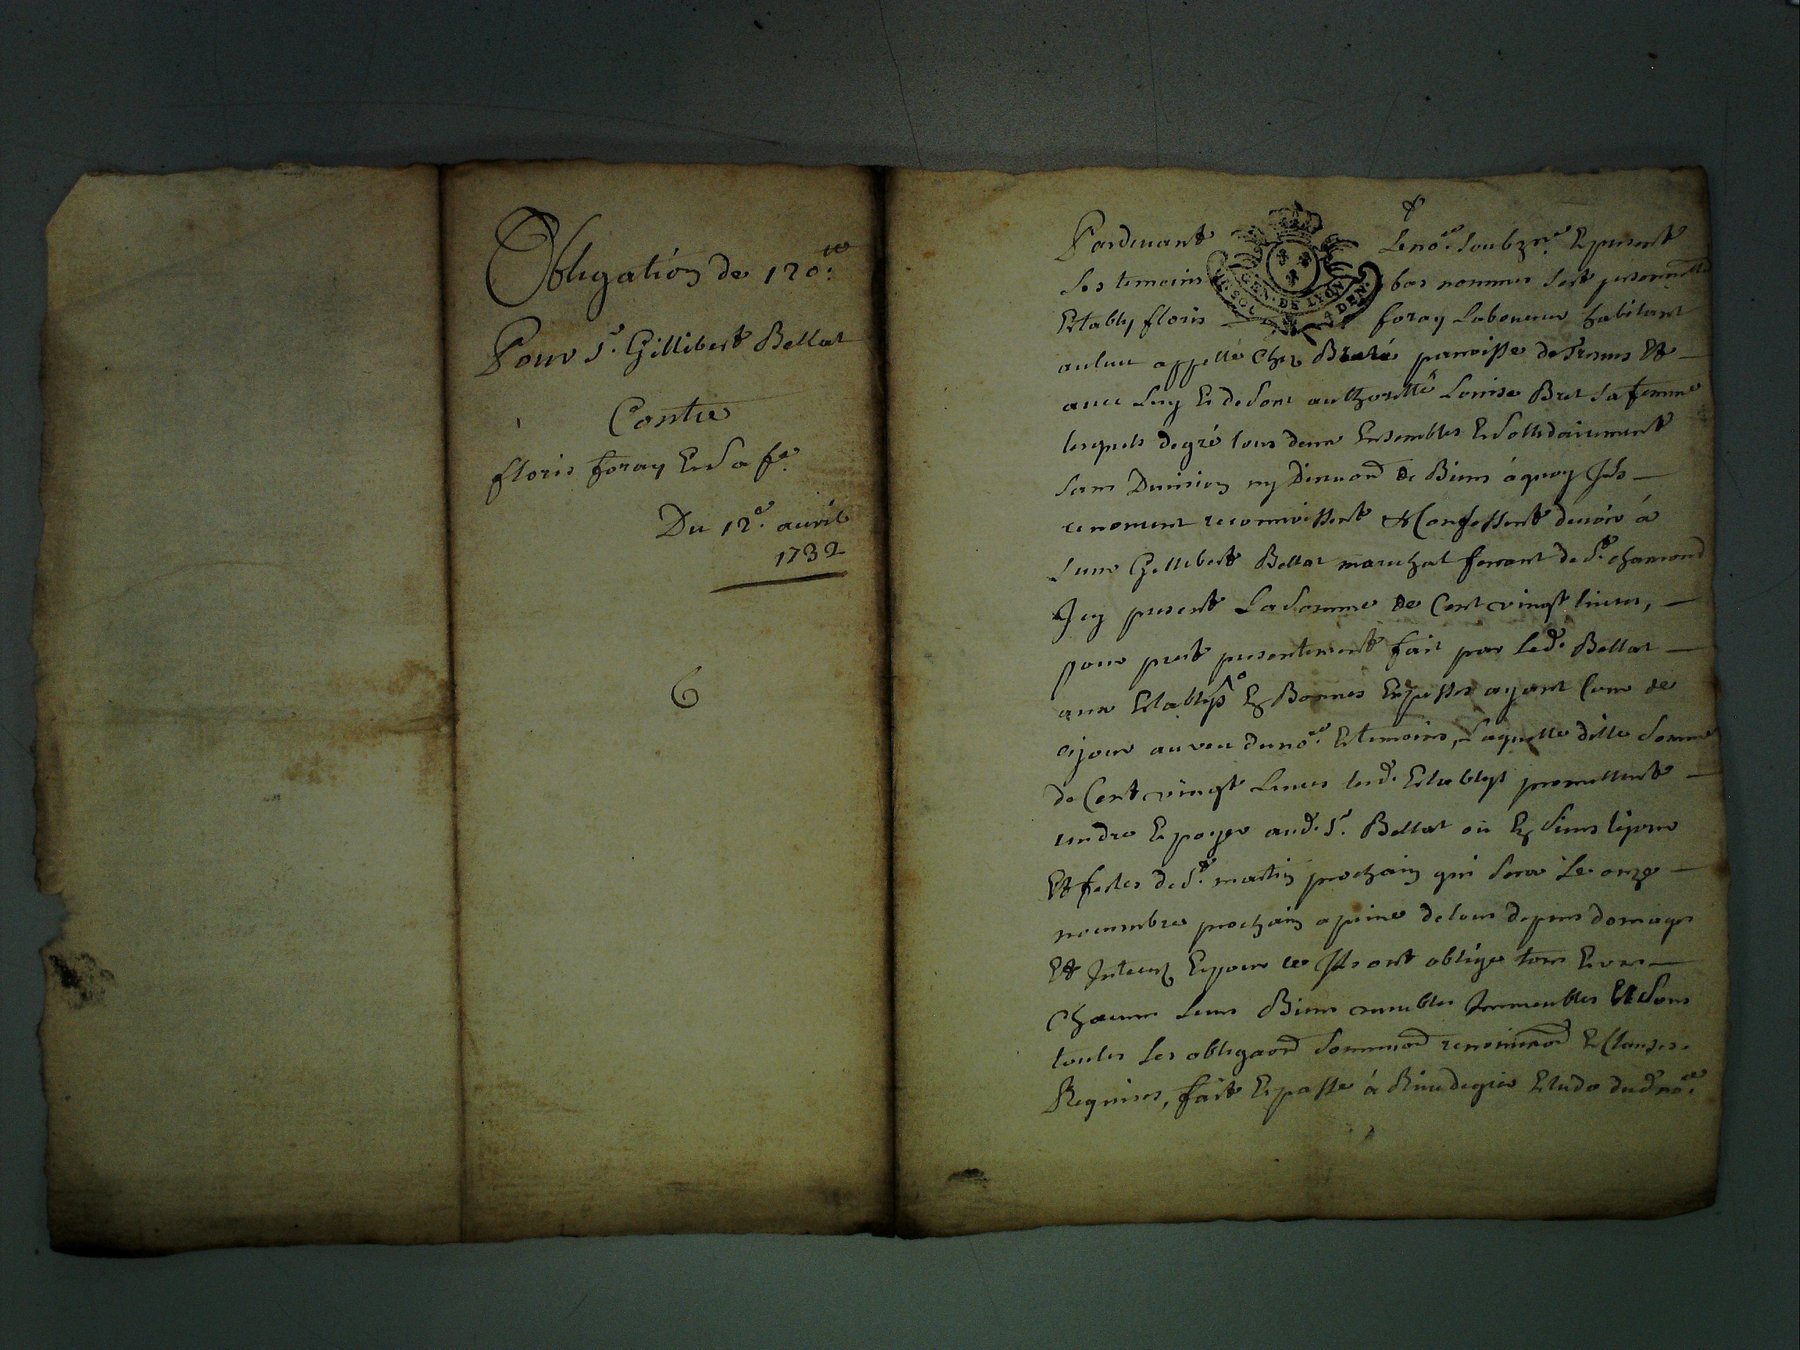 Obligation de 120.ᵗᵗ
Pour Sʳ. Gillibert Bellat
Contre
floris foray Et Sa fᵉ.
Du 12ᵉ. avril
1732
6
Pardevant Le noʳᵉ. Soubzⁿᵉ. Et present
Les temoins bas nommes Sest personⁿᵉˡˡᵉ
Etably floris foray Laboureur habitant
au lieu appellé Chez paroisse de Et
avec Luy Et de Son authoritté Louise Bret Sa femme
lesquels de gré tous deux Ensembles Et Sollidairement
Sans Division ny de Biens á quoy Ils
renoncent reconnoissent & Confessent devoir á
Sieur Gillibert Bellat marechal ferrant de Sᵗ. chamond
Icy present La Somme de Cent vingt livres,
pour prest presentement fait par Led. Bellat
aux Etablys En Bonnes Especes ayant Cour de
ce jour au veu du noʳᵉ. Et temoins, Laquelle ditte Somme
de Cent vingt Livres lesd. Establys promettent
rendre Et payer aud. Sʳ. Bellat ou Es Siens
Et festes de Sᵗ. martin prochain qui Sera Le onze
novembre prochain a peine de tous depens domages
Et Interests Et pour ce Ils ont obligé tous Et un
Chacun Leurs Biens meubles Immeubles Et Sous
toutes Les obligaoⁿˢ Soumissoⁿˢ renonciaoⁿˢ Et Clauses
Requises, fait Et passé á Rivedegier Etude dud. noʳᵉ.
GEN. DE LYON
SOL
DEN.